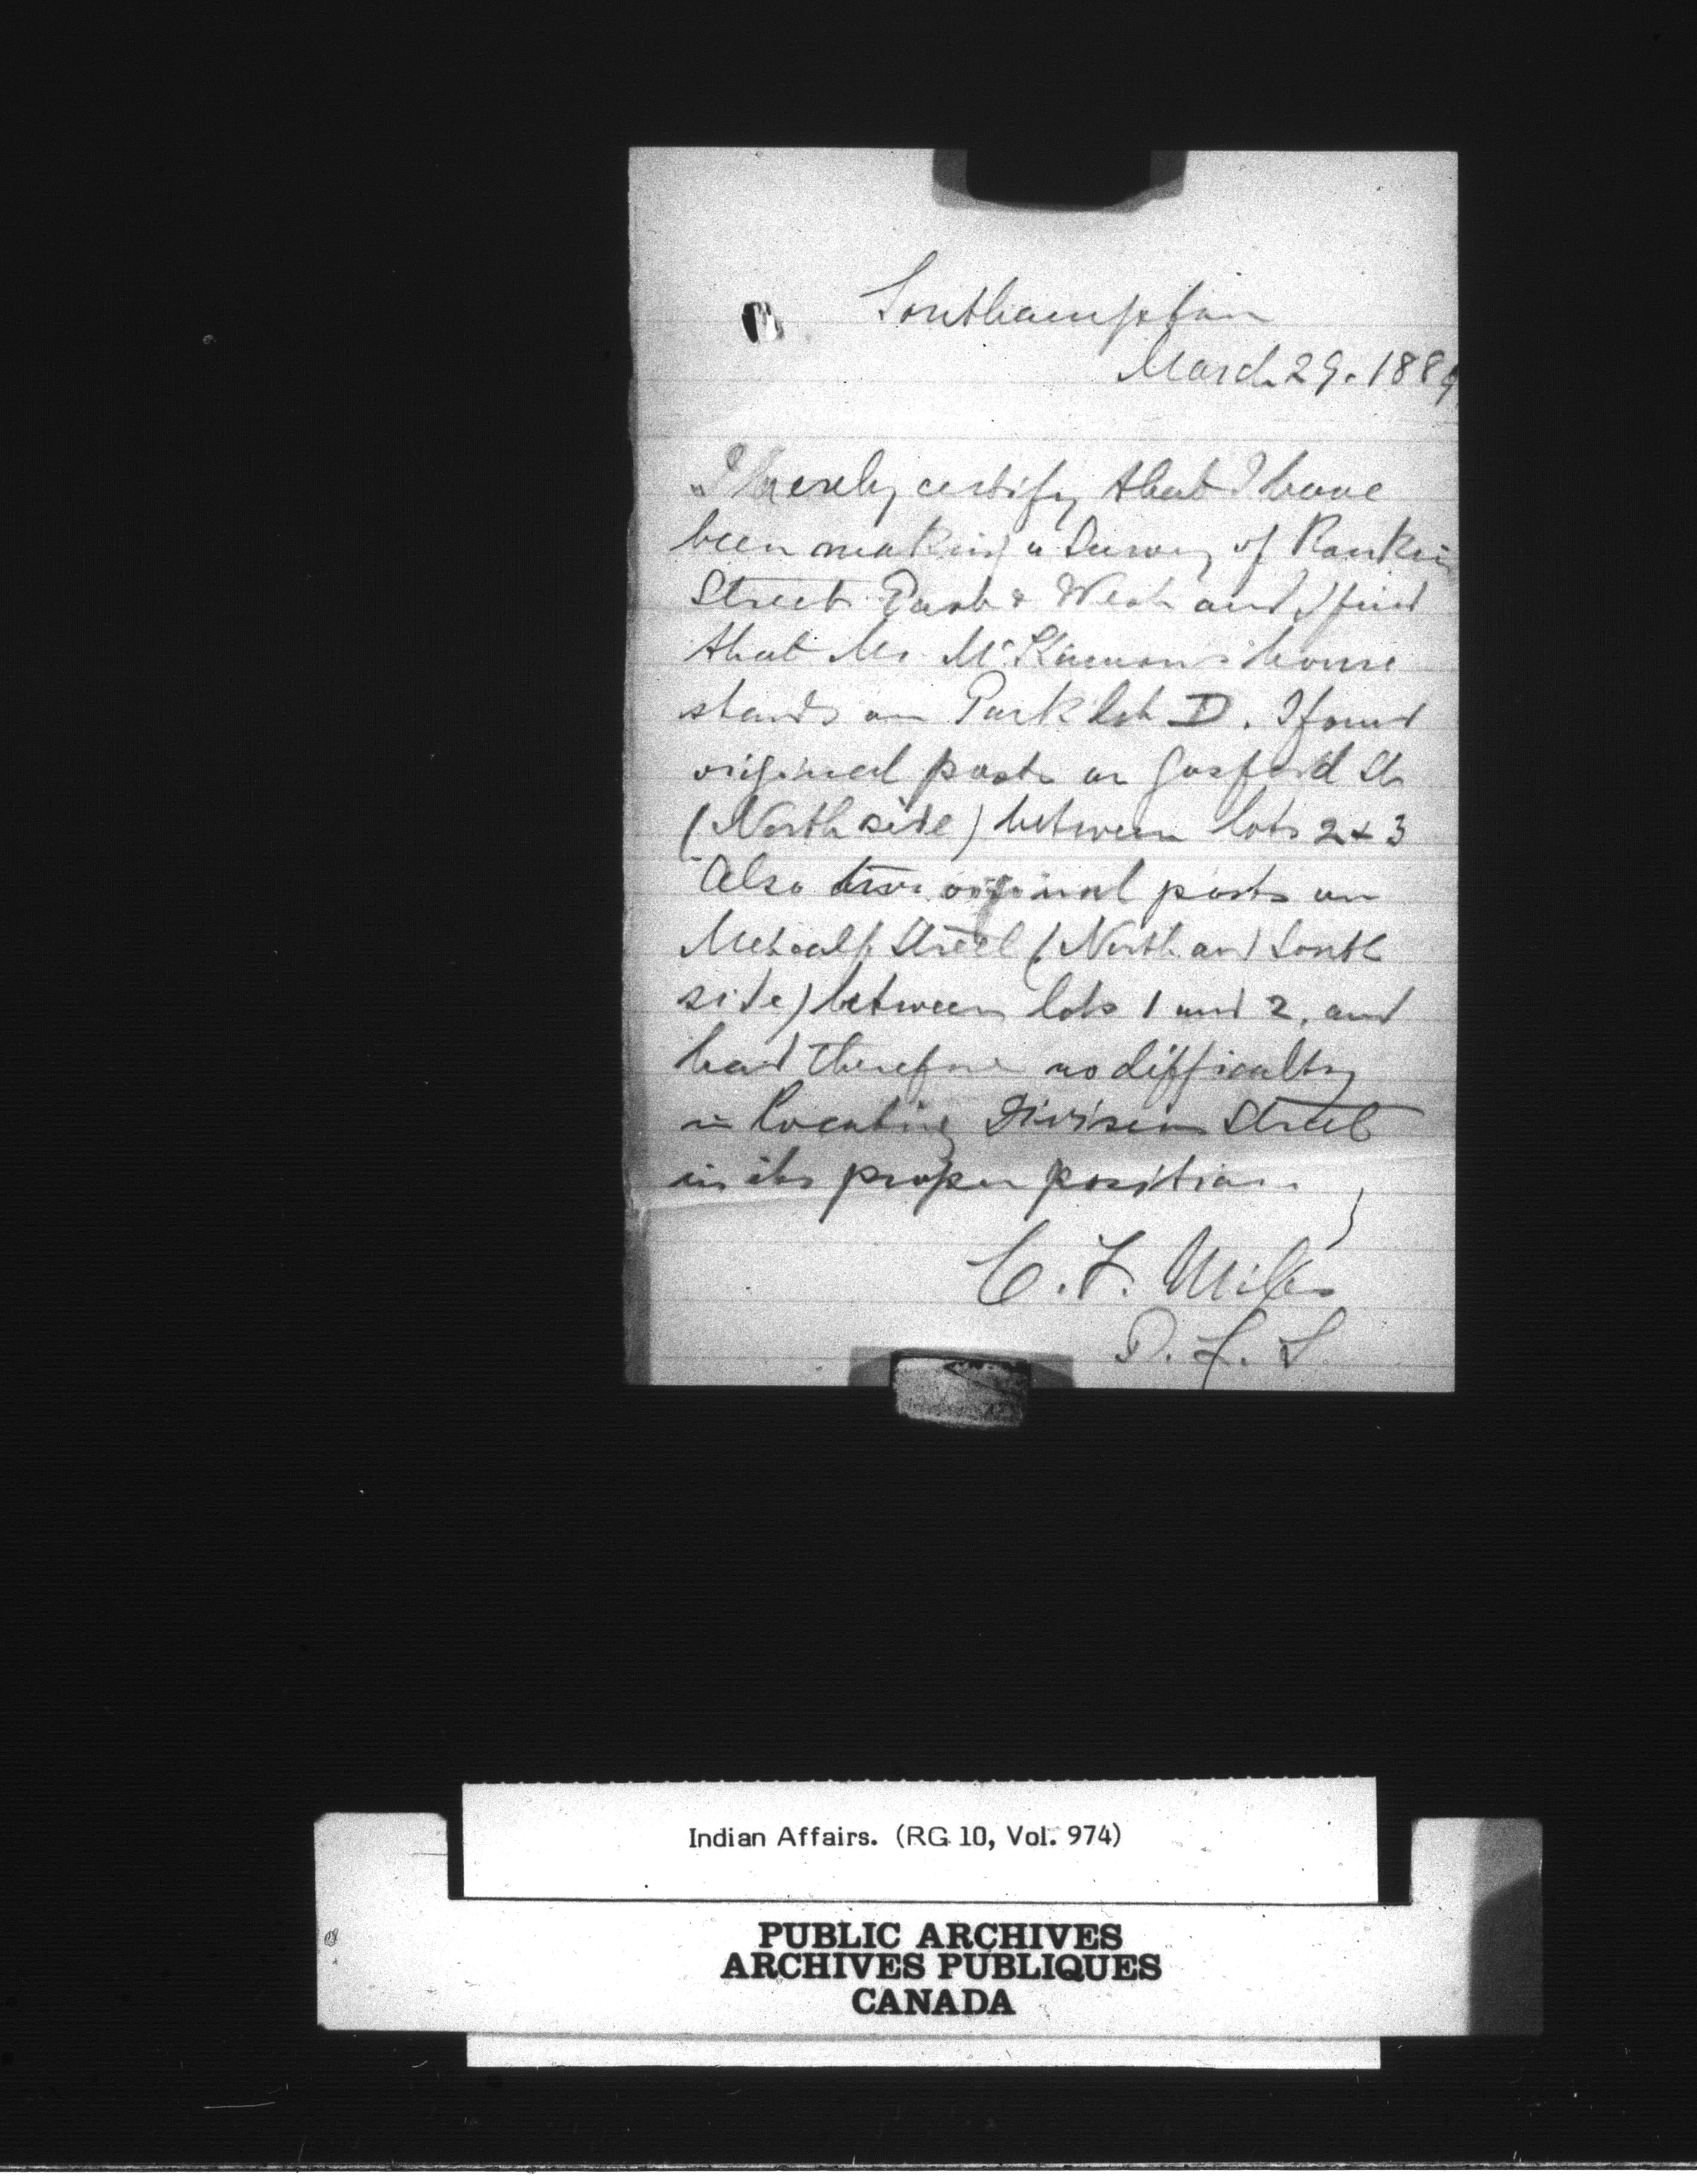 Southampton
March 29. 1889
I hereby certify that I have
been making a Survey of Rankin
Street East & West and I find
that Mr. house
stands on Park lot D. I found
original posts on Gosford St
(North side) between lots 2 & 3
Also two original posts on
Metcalf Street (North and South
side) between lots 1 and 2, and
had therefore no difficulty
in locating Division Street
in its proper position.
C. F. Miles
P. L. S.
Indian Affairs. (RG 10, Vol. 974)
PUBLIC ARCHIVES
ARCHIVES PUBLIQUES
CANADA